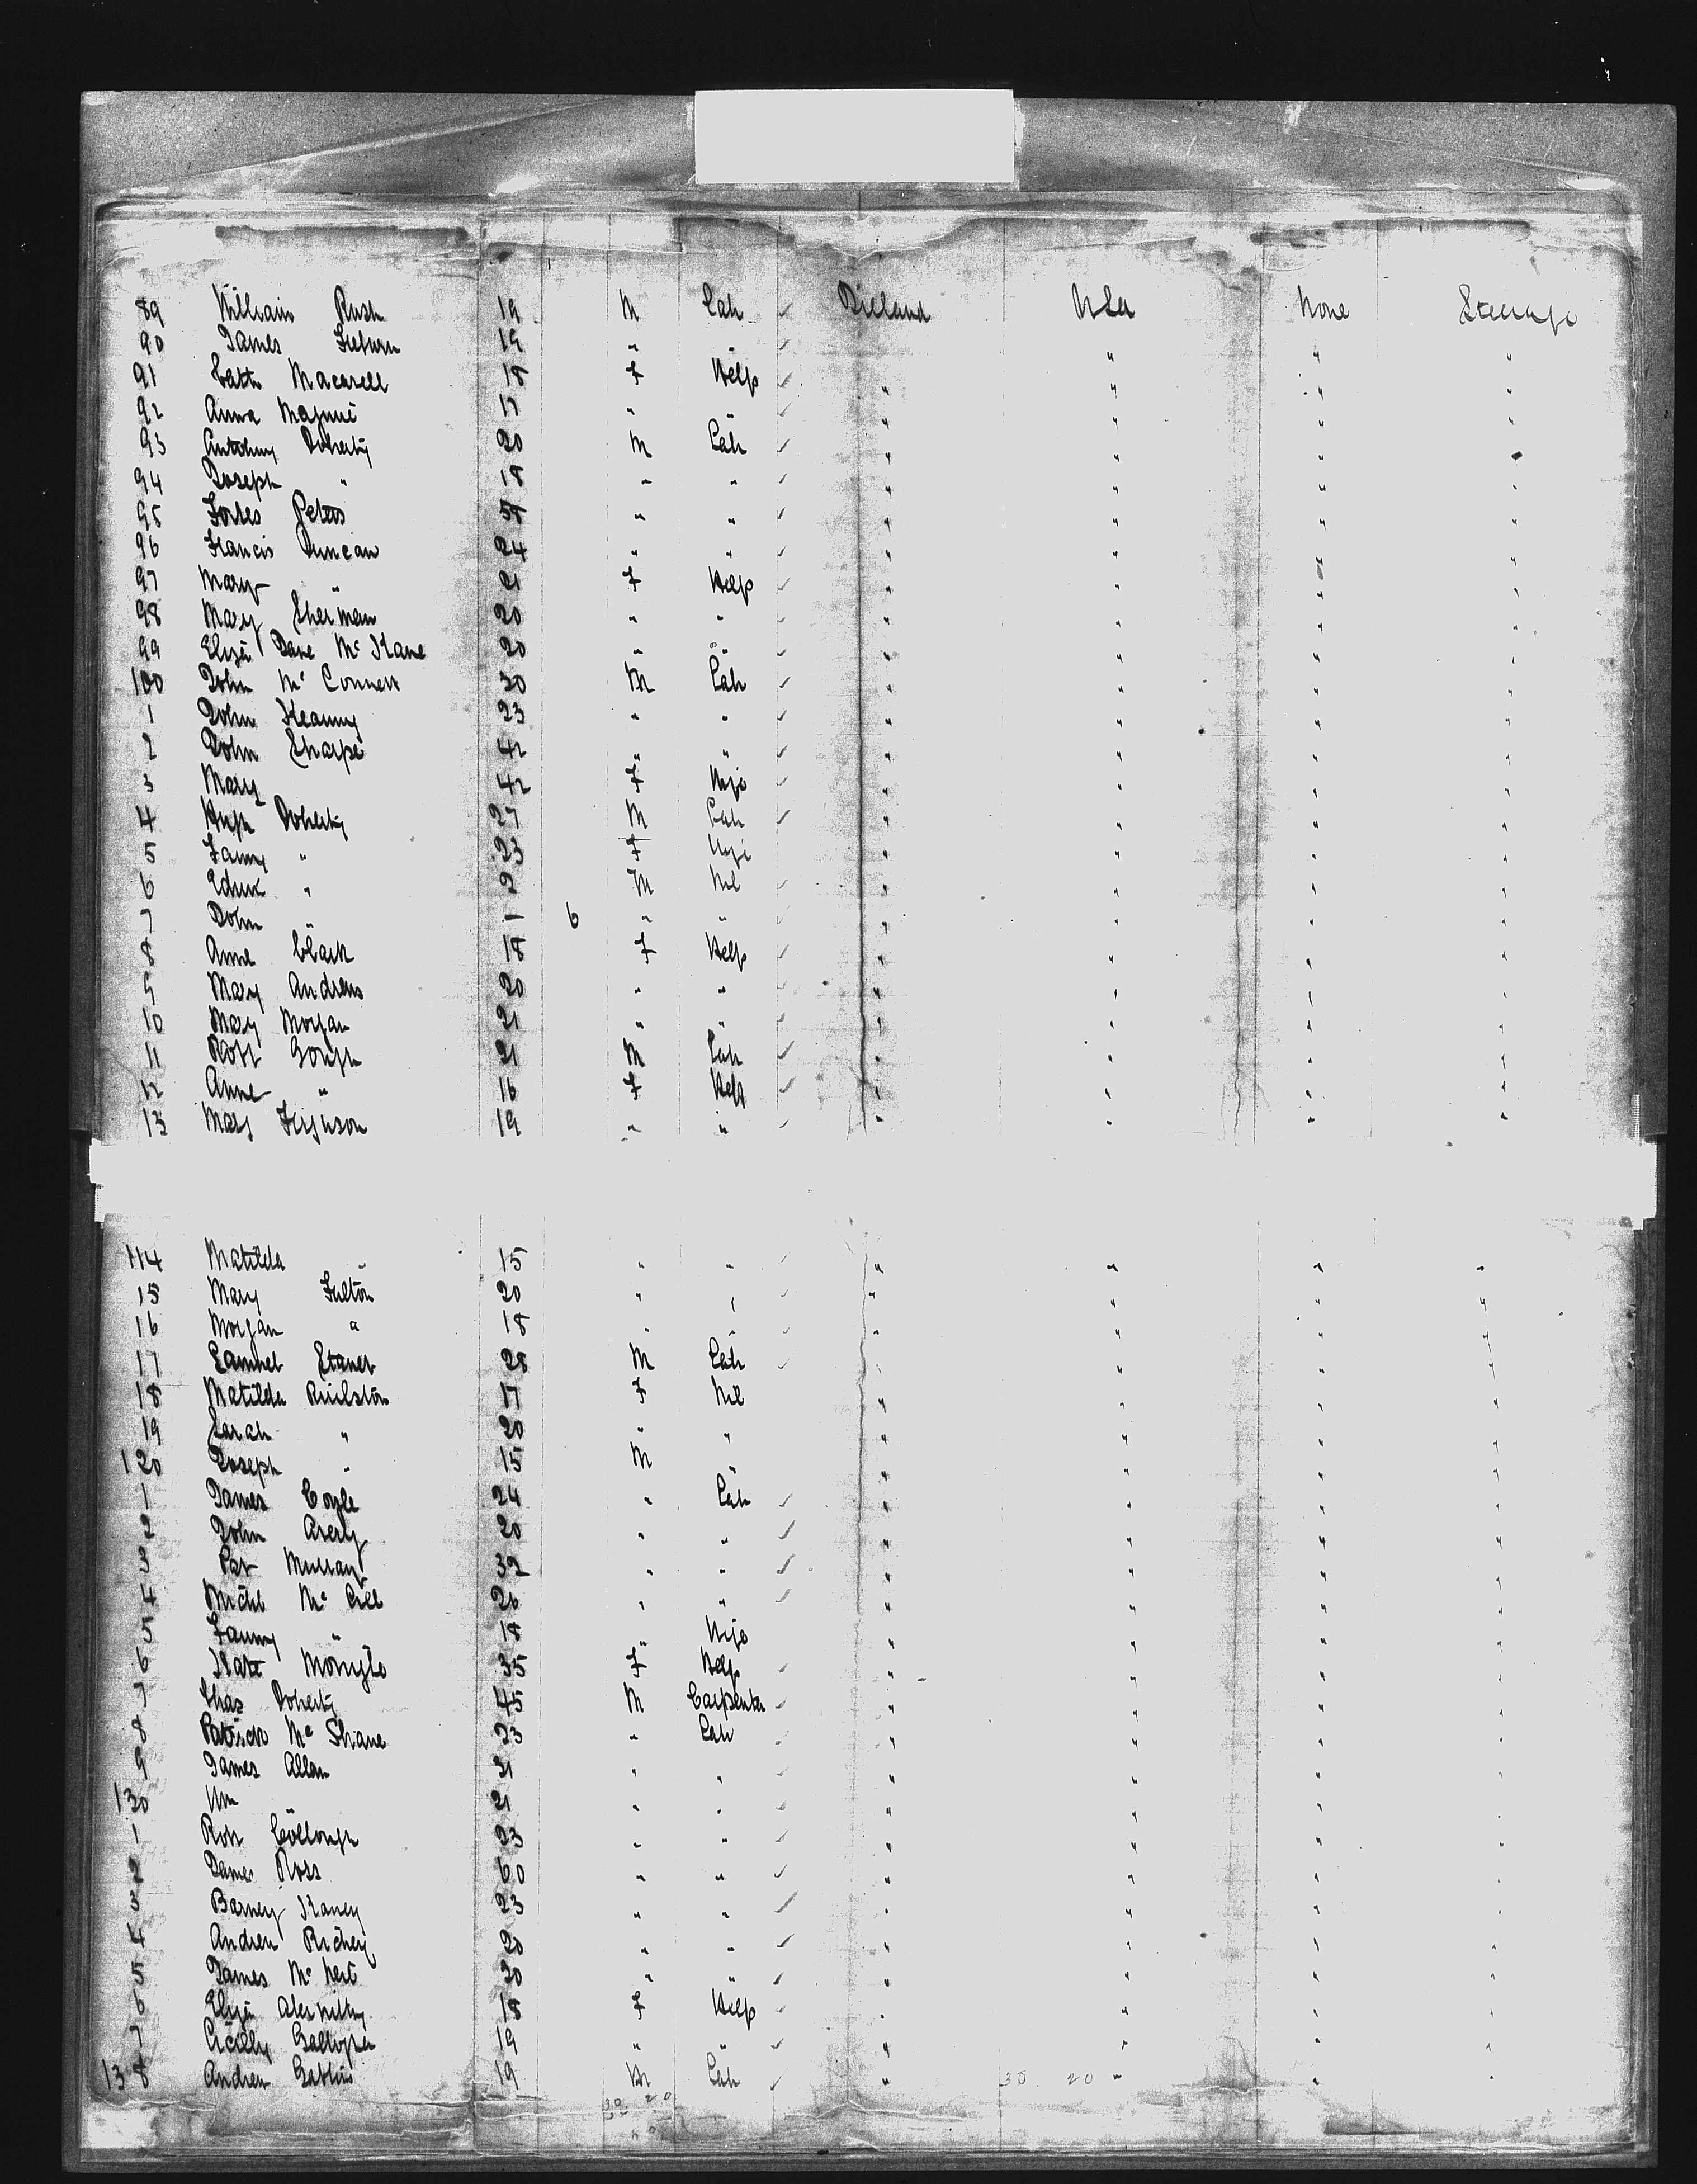 89 William Rush 19 M Lab Ireland USA None Steerage
90 James Hepurn 19 " " " " " "
91 Cath Macarell 18 F Help " " " "
92 Anna 17 " " " " " "
93 Anthony Doherty 20 M Lab " " " "
94 Joseph " 18 " " " " " "
95 Forbes Peters " " " " " "
96 Francis Duncan 24 " " " " " "
97 Mary " 21 F Help " " " "
98 Mary Sherman 20 " " " " " "
99 Eliza Jane McKane 20 " " " " " "
100 John McConnell M Lab " " " "
1 John Kearney 23 " " " " " "
2 John Sharpe 42 " " " " " "
3 Mary 42 F Wife " " " "
4 Hugh Doherty 27 M Lab " " " "
5 Fanny " 23 F Wife " " " "
6 " M Nil " " " "
7 John " 1 6 " " " " " "
8 Anne Clark 18 F Help " " " "
9 Mary Andrews 20 " " " " " "
10 Mary Morgan 21 " " " " " "
11 Robt Gough 21 M Lab " " " "
12 Anne " 16 F Help " " " "
13 Mary Ferguson 19 " " " " " "
114 Matilda " 15 " " " " " "
15 Mary Fulton 20 " " " " " "
16 Morgan " 18 " " " " " "
17 Samuel 28 M Lab " " " "
18 Matilda 17 F Nil " " " "
19 Sarah " 20 " " " " " "
120 Joseph " 15 M " " " " "
1 James Coyle 24 " Lab " " " "
2 John 20 " " " " " "
3 Pat Murray 39 " " " " " "
4 Michl 26 " " " " " "
5 Fanny " 18 " Wife " " " "
6 Kate Monigle 35 F Help " " " "
7 Chas Doherty 45 M Carpenter " " " "
8 Patrick McShane 23 " Lab " " " "
9 James Allan 21 " " " " " "
130 Wm 21 " " " " " "
1 Robt Collough 23 " " " " " "
2 James Ross 60 " " " " " "
3 Barney Kaney 23 " " " " " "
4 Andrew Richey 20 " " " " " "
5 James 30 " " " " " "
6 Eliza 18 F Help " " " "
7 Cicilly 19 " " " " " "
138 Andrew 19 M Lab " 30 20 " " "
30 20